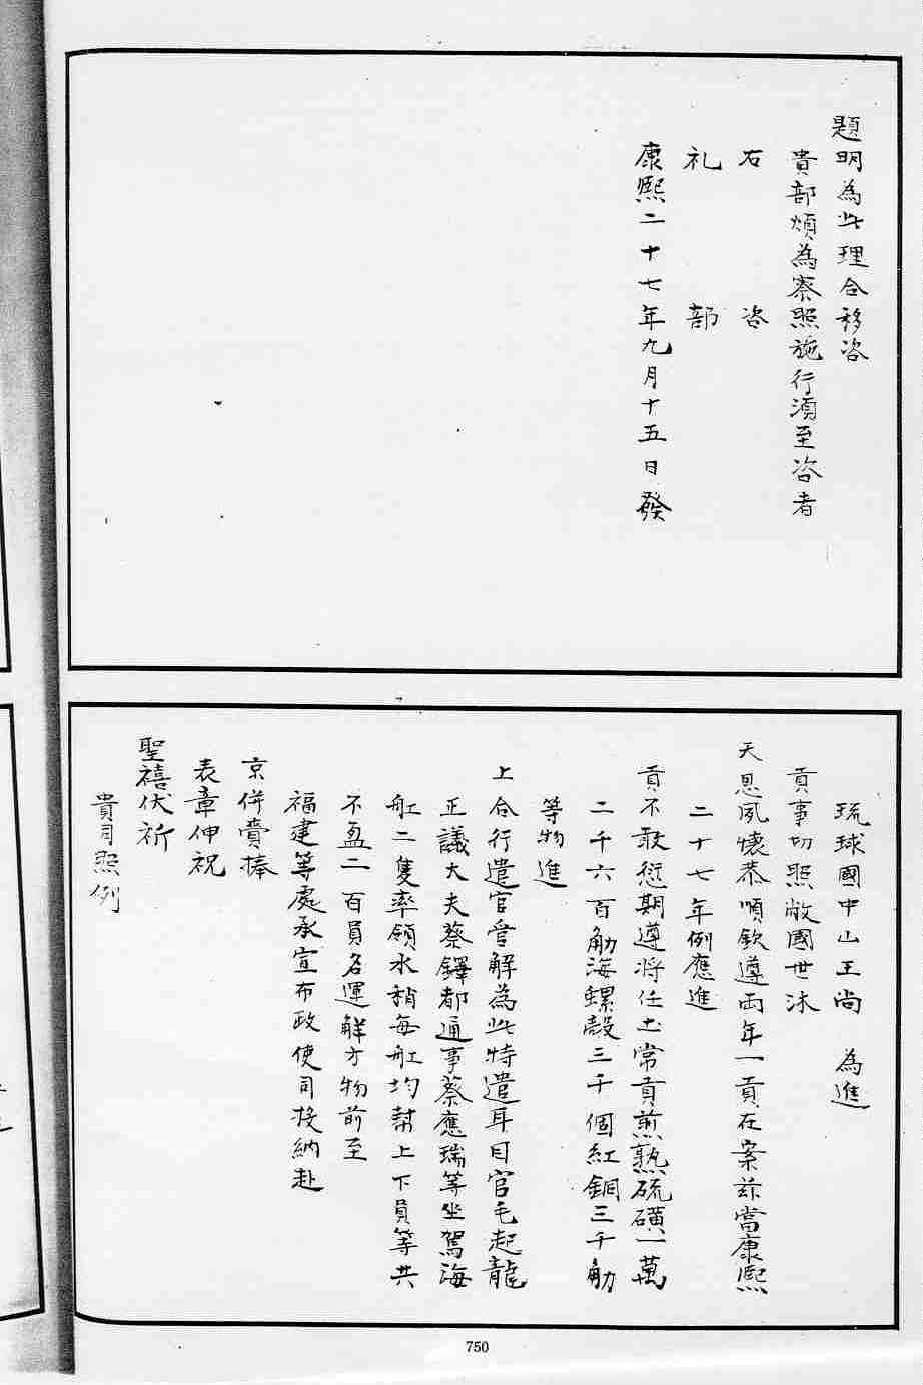 題明為此理合移咨
貴部煩為察照施行須至咨者
右咨
礼部
康熙二十七年九月十五日發
琉球國中山王尚　為進
貢事切照敝國世沐
天恩夙懷恭順欽遵兩年一貢在案茲當康熙
二十七年例應進
貢不敢愆期遵將任土常貢煎熟硫磺一萬
二千六百觔海螺殼三千個紅銅三千觔
等物進
上合行遣官管解為此特遣耳目官毛起龍
正議大夫蔡鐸都通事蔡應瑞等坐駕海
舡二隻率領水稍每舡均幇上下員等共
不盈二百員名運解方物前至
福建等處承宣布政使司投納赴
京併賫捧
表章伸祝
聖禧伏祈
貴司照例
750